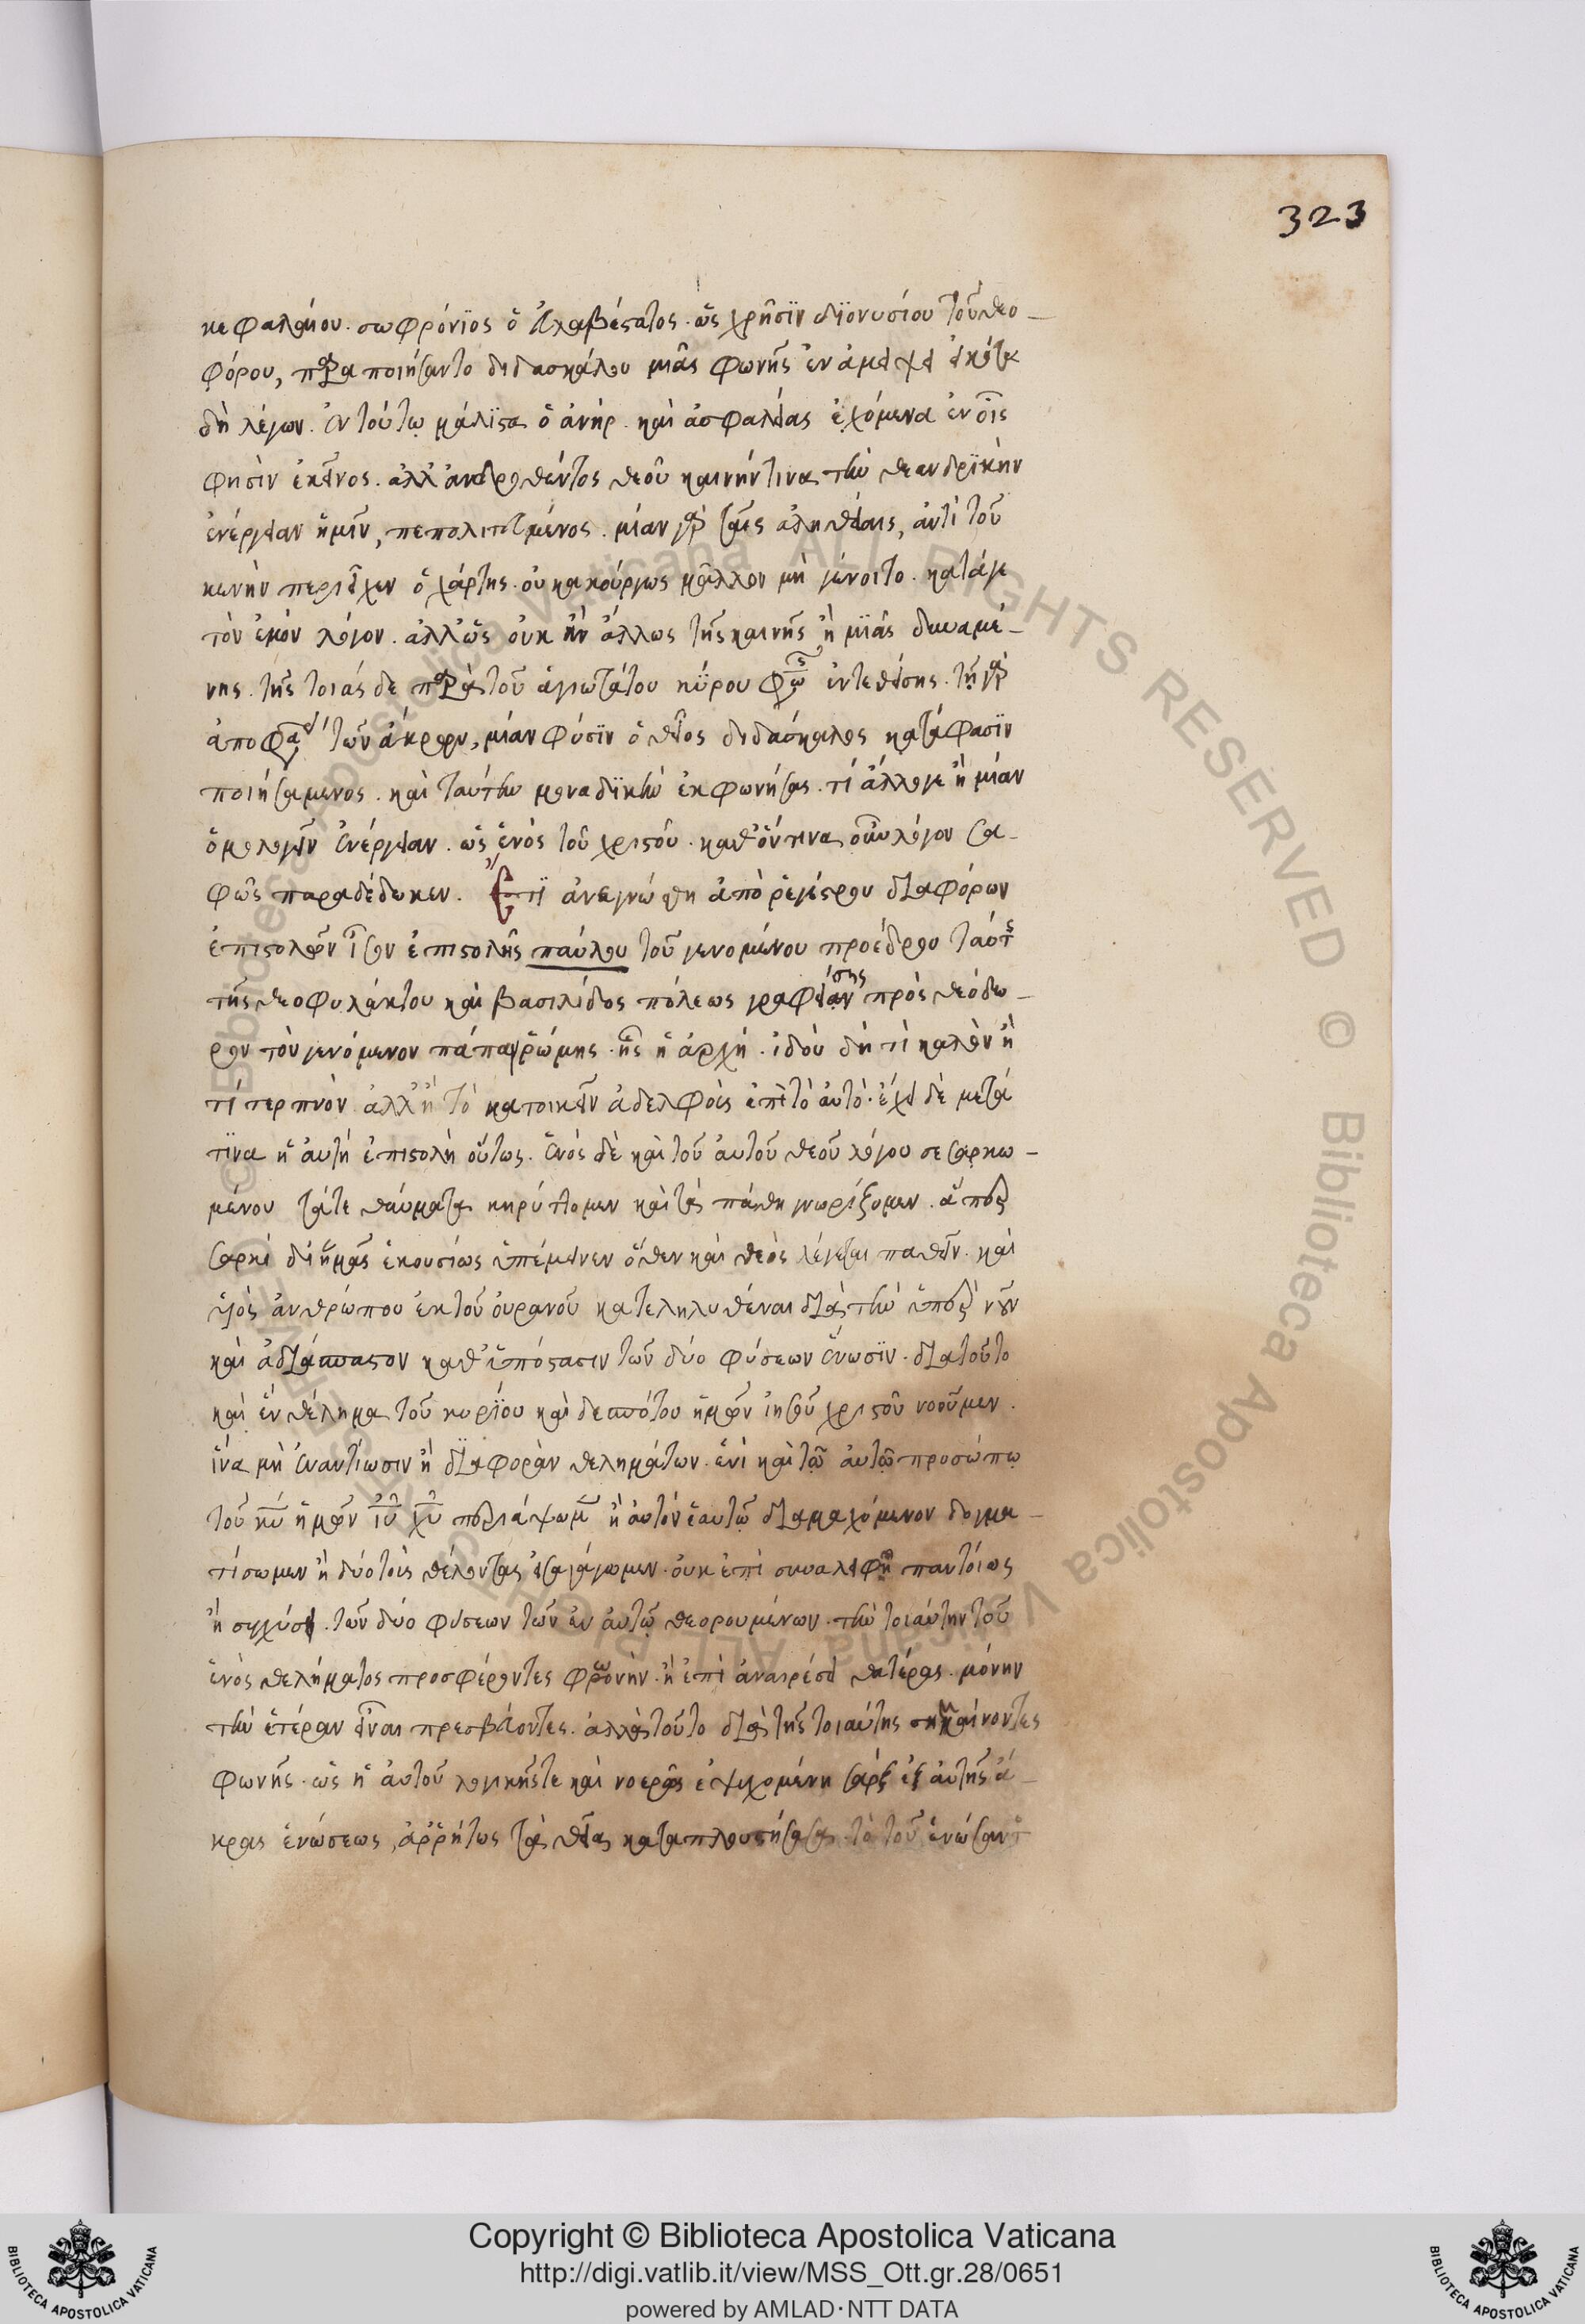 323
κεφαλαίου. σωφρόνϊος ὁ εὐλαβέστατος. ὡς χρῆσϊν διονυσίου τοῦ θεο-
φόρου, παραποιήσαντο διδασκάλου μιᾶς φωνῆς ἐν ἀμείψει
δὴ λέγων. ἐν τούτω μάλϊστα ὁ ἀνήρ. καὶ ἀσφαλείας ἐχόμενα ἐν οἷς
φησὶν ἐκεῖνος. ἀλλ' ἀνδρωθέντος θεοῦ καινήν τινα τὴν θεανδρϊκὴν
ἐνέργειαν ἡμῖν, πεπολιτευμένος. μίαν γὰρ ταῖς ἀληθείαις, ἀντὶ τοῦ
κενὴν περιεῖχεν ὁ χάρτης. οὐ κακούργως μᾶλλον μὴ γένοιτο. κατάγε
τὸν ἐμὸν λόγον. ἀλλ' ὡς οὐκ ἦν ἄλλως τῆς καινῆς ἢ μϊᾶς δυναμέ-
νης. τῆς τοιᾶσδε παρὰ τοῦ ἁγιωτάτου κύρου ἐντεθείσης. τῇ γὰρ
ἀποφάσει τῶν ἄκρων, μίαν φύσϊν ὁ θεῖος διδάσκαλος κατάφασϊν
ποιησάμενος. καὶ ταύτην μοναδϊκὴν ἐκφωνήσας. τί ἄλλογε ἢ μίαν
ὁμολογεῖν ἐνέργειαν. ὡς ἑνὸς τοῦ χριστοῦ. καθ' ὅντινα οὖν λόγον σα-
φῶς παραδέδωκεν. Ἔτϊ ἀνεγνώσθη ἀπὸ ῥεγέστρου διαφόρων
ἐπιστολῶν ἶσον ἐπιστολῆς παύλου τοῦ γενομένου προέδρου ταύτης
τῆς θεοφυλάκτου καὶ βασιλίδος πόλεως γραφείσης πρὸς θεόδω-
ρον τὸν γενόμενον πάπαν ῥώμης. ἧς ἡ ἀρχή. ἰδοὺ δὴ τὶ καλὸν ἢ
τί τερπνὸν ἀλλ' ἢ τὸ κατοικεῖν ἀδελφοὺς ἐπὶ τὸ αὐτό. ἔχει δὲ μετά
τϊνα ἡ αὐτὴ ἐπιστολὴ οὕτως. Ἑνὸς δὲ καὶ τοῦ αὐτοῦ θεοῦ λόγου σεσαρκω-
μένου τάτε θαύματα κηρύττομεν καὶ τὰ πάθη γνωρίζομεν. ἅπερ
σαρκὶ δι' ἡμᾶς ἑκουσίως ὑπέμεινεν ὅθεν καὶ θεὸς λέγεται παθεῖν. καὶ
υἱὸς ἀνθρώπου ἐκ τοῦ οὐρανοῦ κατεληλυθέναι διὰ τὴν ὑπὲρ νοῦν
καὶ ἀδιάσπαστον καθ' ὑπόστασιν τῶν δύο φύσεων ἕνωσϊν. διατοῦτο
καὶ ἓν θέλημα τοῦ κυρίου καὶ δεσπότου ἡμῶν ἰησοῦ χριστοῦ νοοῦμεν.
ἵνα μὴ ἐναντίωσιν ἢ διαφορὰν θελημάτων. ἑνὶ καὶ τῶ αὐτῶ προσώπω
τοῦ κυ ἡμῶν ιυ χυ περιάψωμεν ἢ αὐτὸν ἑαυτῷ διαμαχόμενον δογμα-
τίσωμεν ἢ δύο τοὺς θέλοντας εἰσαγάγωμεν. οὐκ ἐπὶ συναλειφῇ παντοίως
ἢ συγχύσει. τῶν δύο φύσεων τῶν ἐν αὐτῷ θεορουμένων. τὴν τοιαύτην τοῦ
ἑνὸς θελήματος προσφέροντες φωνὴν. ἢ ἐπὶ ἀναιρέσει θατέρας. μόνην
τὴν ἑτέραν εἶναι πρεσβεύοντες. ἀλλὰ τοῦτο διὰ τῆς τοιαύτης σημαίνοντες
φωνῆς. ὡς ἡ αὐτοῦ λογικῆς τε καὶ νοερᾶς ἐψυχομένη σάρξ ἐξ αὐτῆς ἄ-
κρας ἑνώσεως, ἀῤῥήτως τὰ θεῖα καταπλουτήσασα τὸ τοῦ ἑνώσαντος